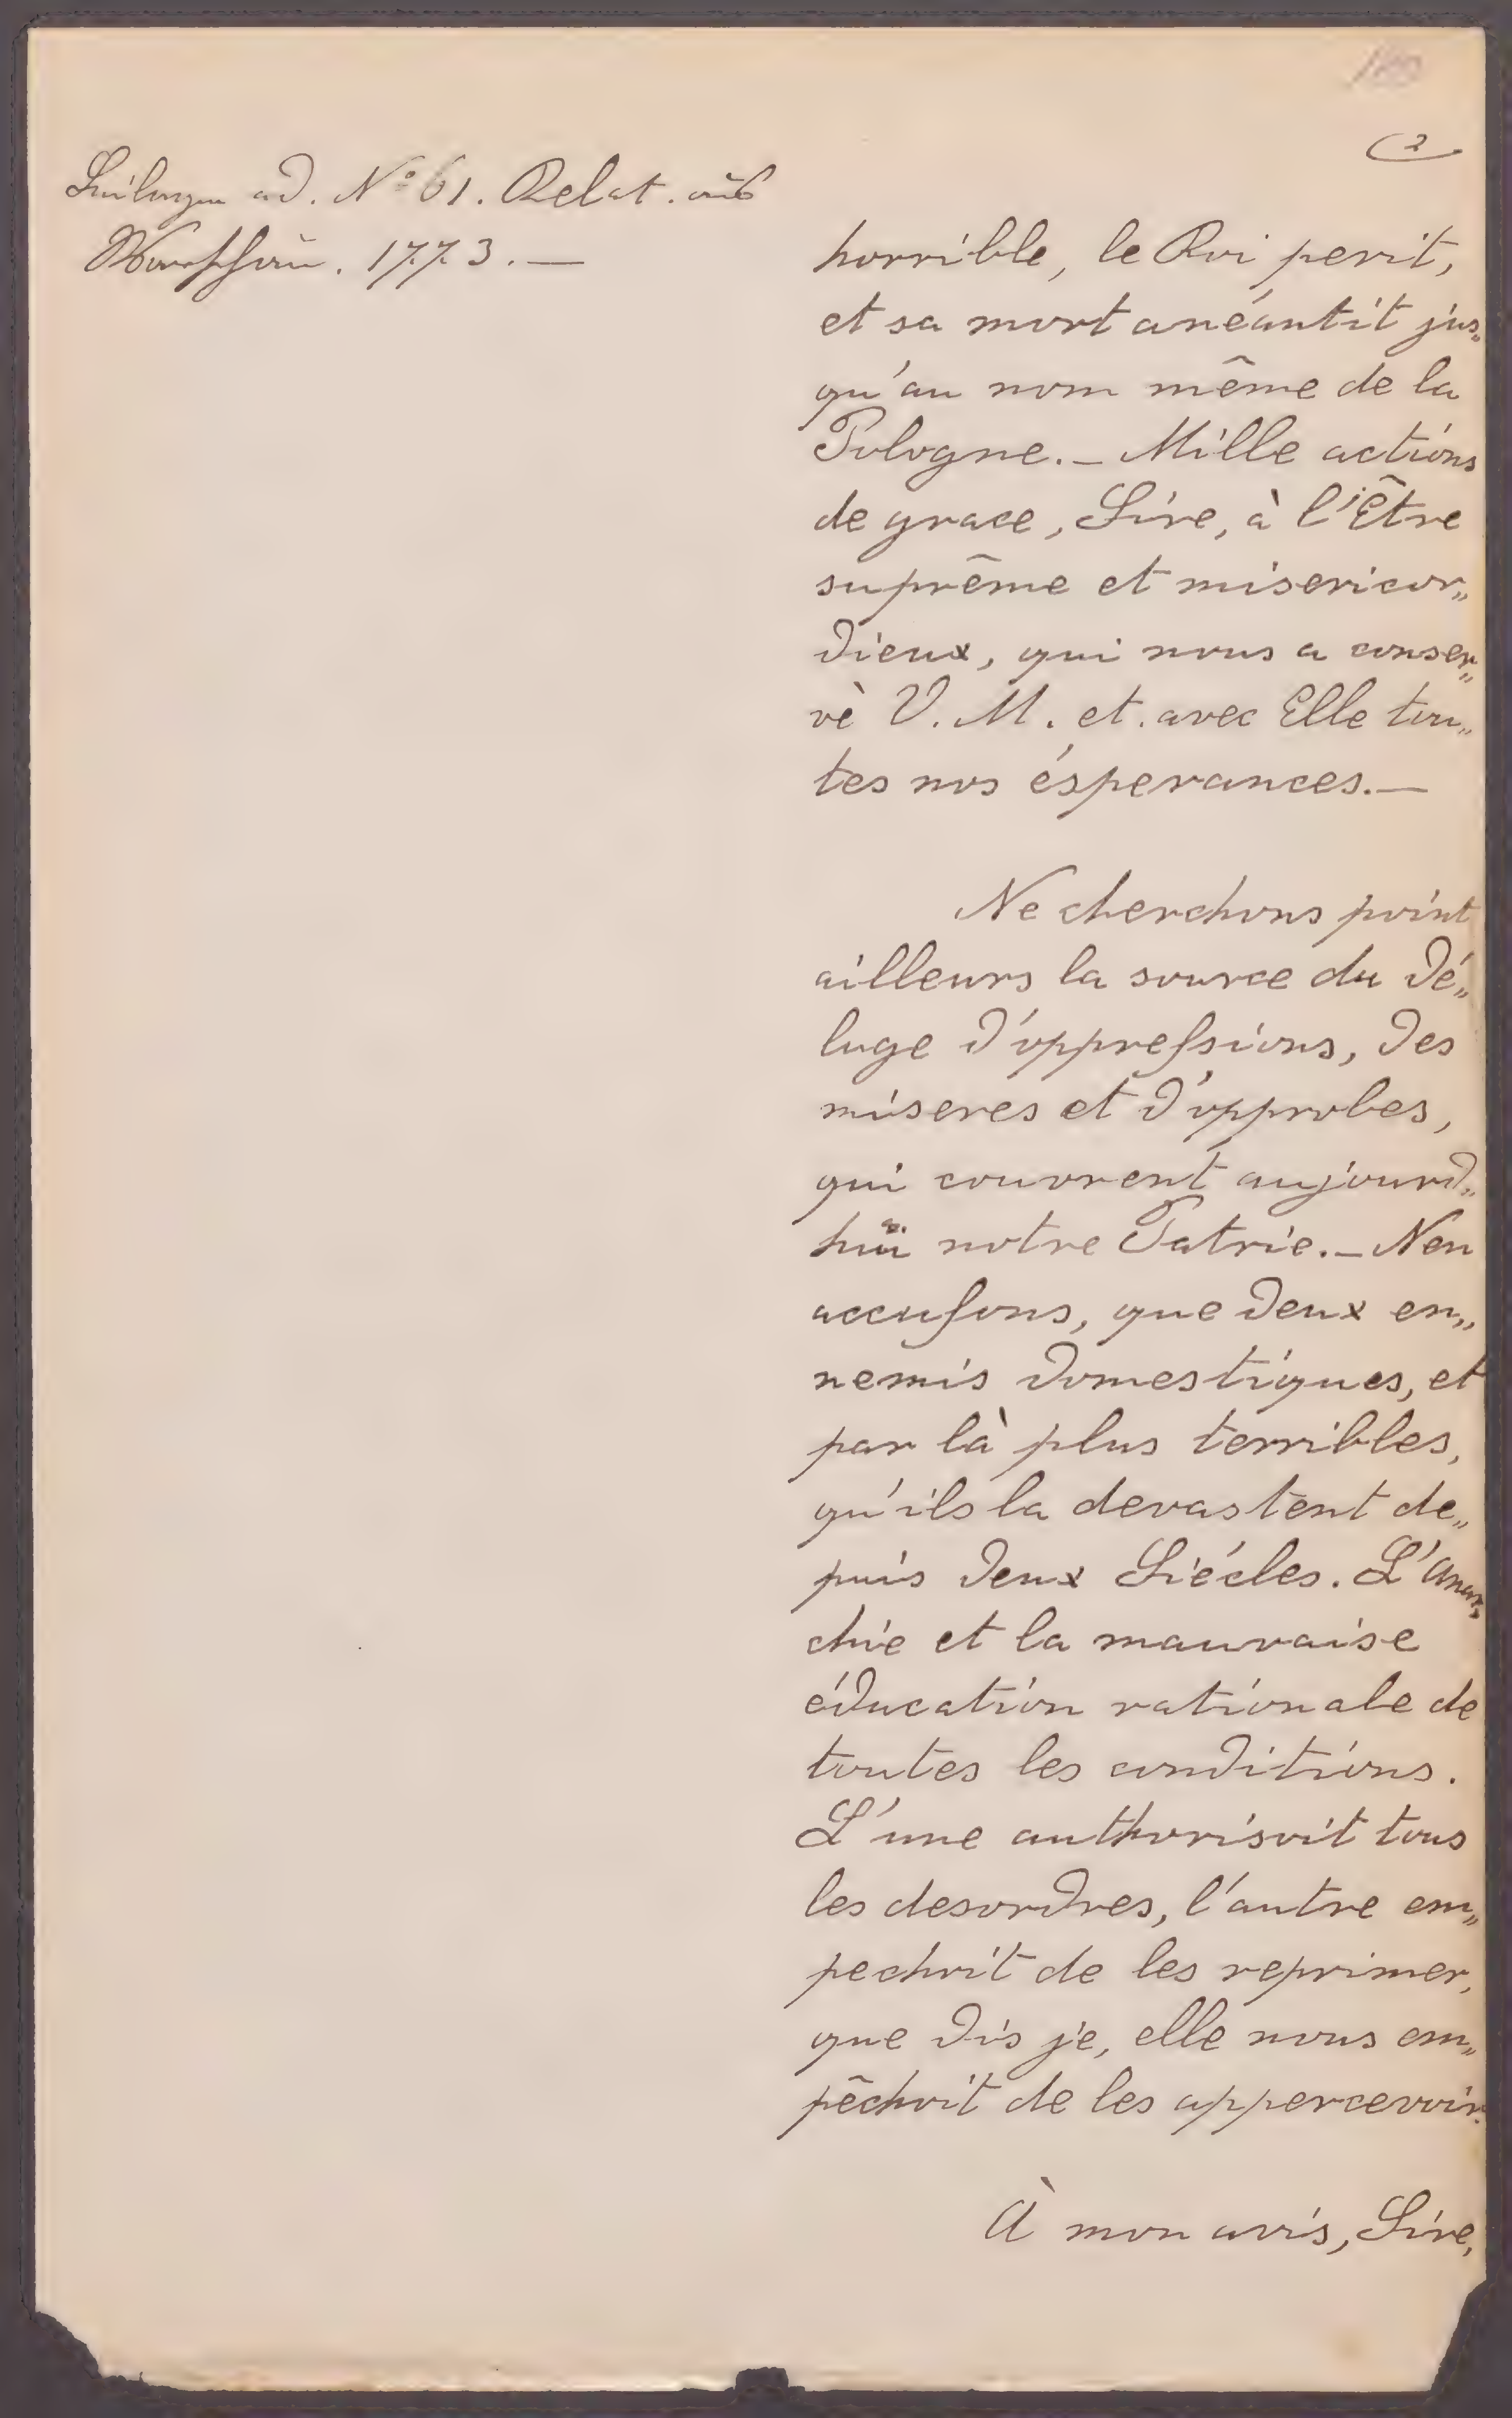 2
Beilagen ad. No 61. Relat. aus
Warschau. 1773. —
horrible, le Roi perit,
et sa mort anéantit jus„
qu'au nom même de la
Pologne. — Mille actions
de grace, Sire, à l'Être
suprême et misericor„
dieux, qui nous a conser„
vè V. M. et. avec Elle tou„
tes nos ésperances. —
Ne cherchons point
ailleurs la source du dé„
luge d'oppreſsions, des
miseres et d'opprobes,
qui couvrent aujourd„
huï notre Patrie. — Nen
accuſons, que deux en„
nemis domestiques, et
par là plus terribles,
qu'ils la devastent de„
puis deux Siécles. L'Anar„
chie et la mauvaise
éducation rationale de
toutes les conditions.
L'une authorisoit tous
les desordres, l'autre em„
pechoit de les reprimer,
que dis je, elle nous em„
pêchoit de les appercevoir.
À mon avis, Sire,